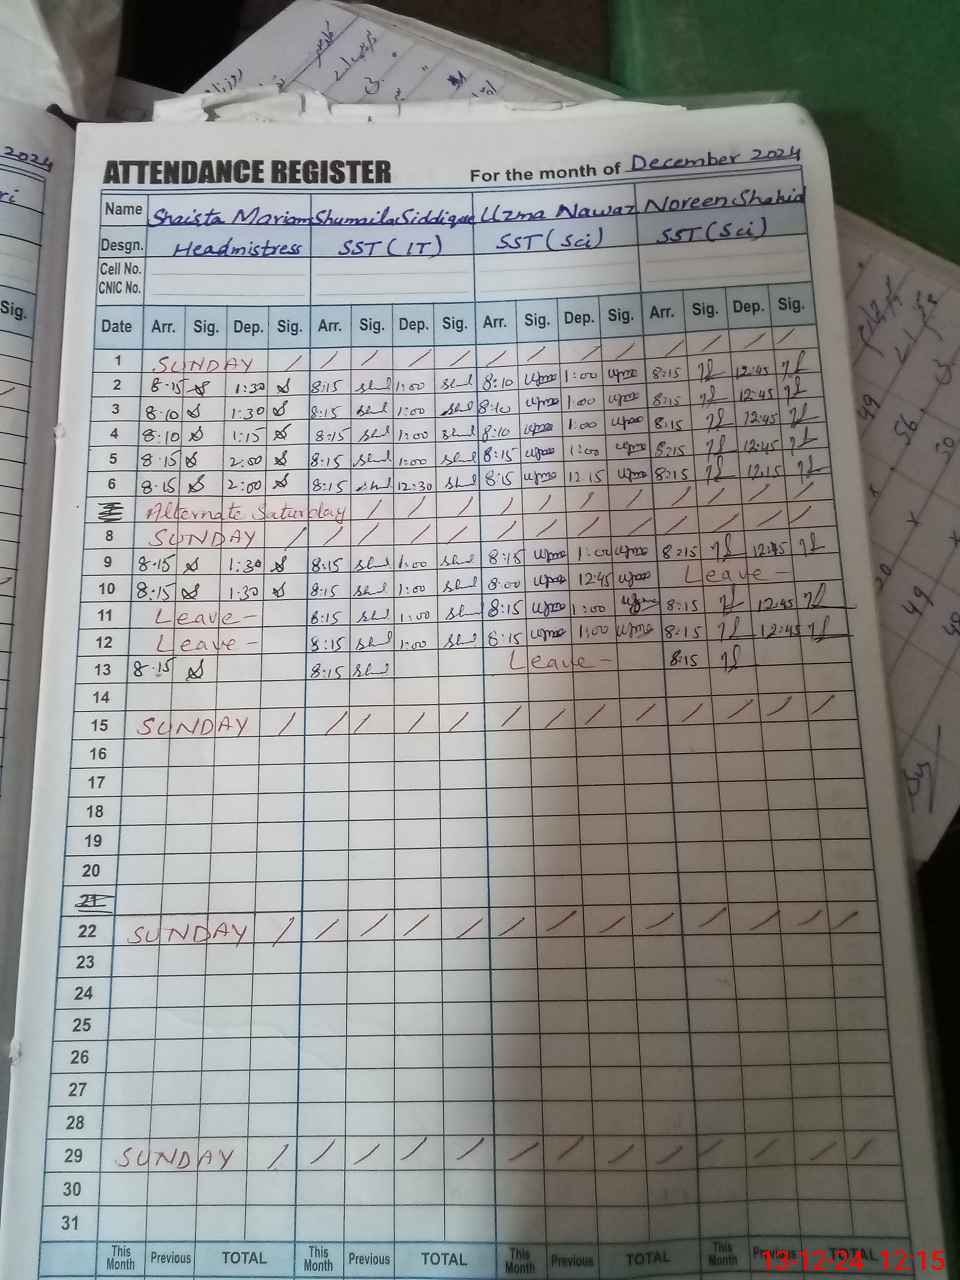 2024
ri
Sig.
ATTENDANCE REGISTER For the month of December 2024
Name Shaista Mariam Shumaila Siddique Uzma Nawaz Noreen Shahid
Desgn. Headmistress SST (IT) SST (Sci) SST (Sci)
Cell No.
CNIC No.
Date Arr. Sig. Dep. Sig. Arr. Sig. Dep. Sig. Arr. Sig. Dep. Sig. Arr. Sig. Dep. Sig.
1 SUNDAY / / / / / / / / / / / / /
2 8:15 1:30 8:15 1:00 8:10 1:00 8:15 12:45
3 8:10 1:30 8:15 1:00 8:10 1:00 8:15 12:45
4 8:10 1:15 8:15 1:00 8:10 1:00 8:15 12:45
5 8:15 2:00 8:15 1:00 8:15 1:00 8:15 12:45
6 8:15 2:00 8:15 12:30 8:15 12:15 8:15 12:15
Alternate Saturday / / / / / / / / / / /
8 SUNDAY / / / / / / / / / / / / /
9 8:15 1:30 8:15 1:00 8:15 1:00 8:15 12:45
10 8:15 1:30 8:15 1:00 8:00 12:45 Leave –
11 Leave – 8:15 1:00 8:15 1:00 8:15 12:45
12 Leave – 8:15 1:00 8:15 1:00 8:15 12:45
13 8:15 8:15 Leave – 8:15
14
15 SUNDAY / / / / / / / / / / / / /
16
17
18
19
20
21
22 SUNDAY / / / / / / / / / / / / /
23
24
25
26
27
28
29 SUNDAY / / / / / / / / / / / / /
30
31
This Month Previous TOTAL This Month Previous TOTAL This Month Previous TOTAL This Month Previous TOTAL
13-12-24 12:15